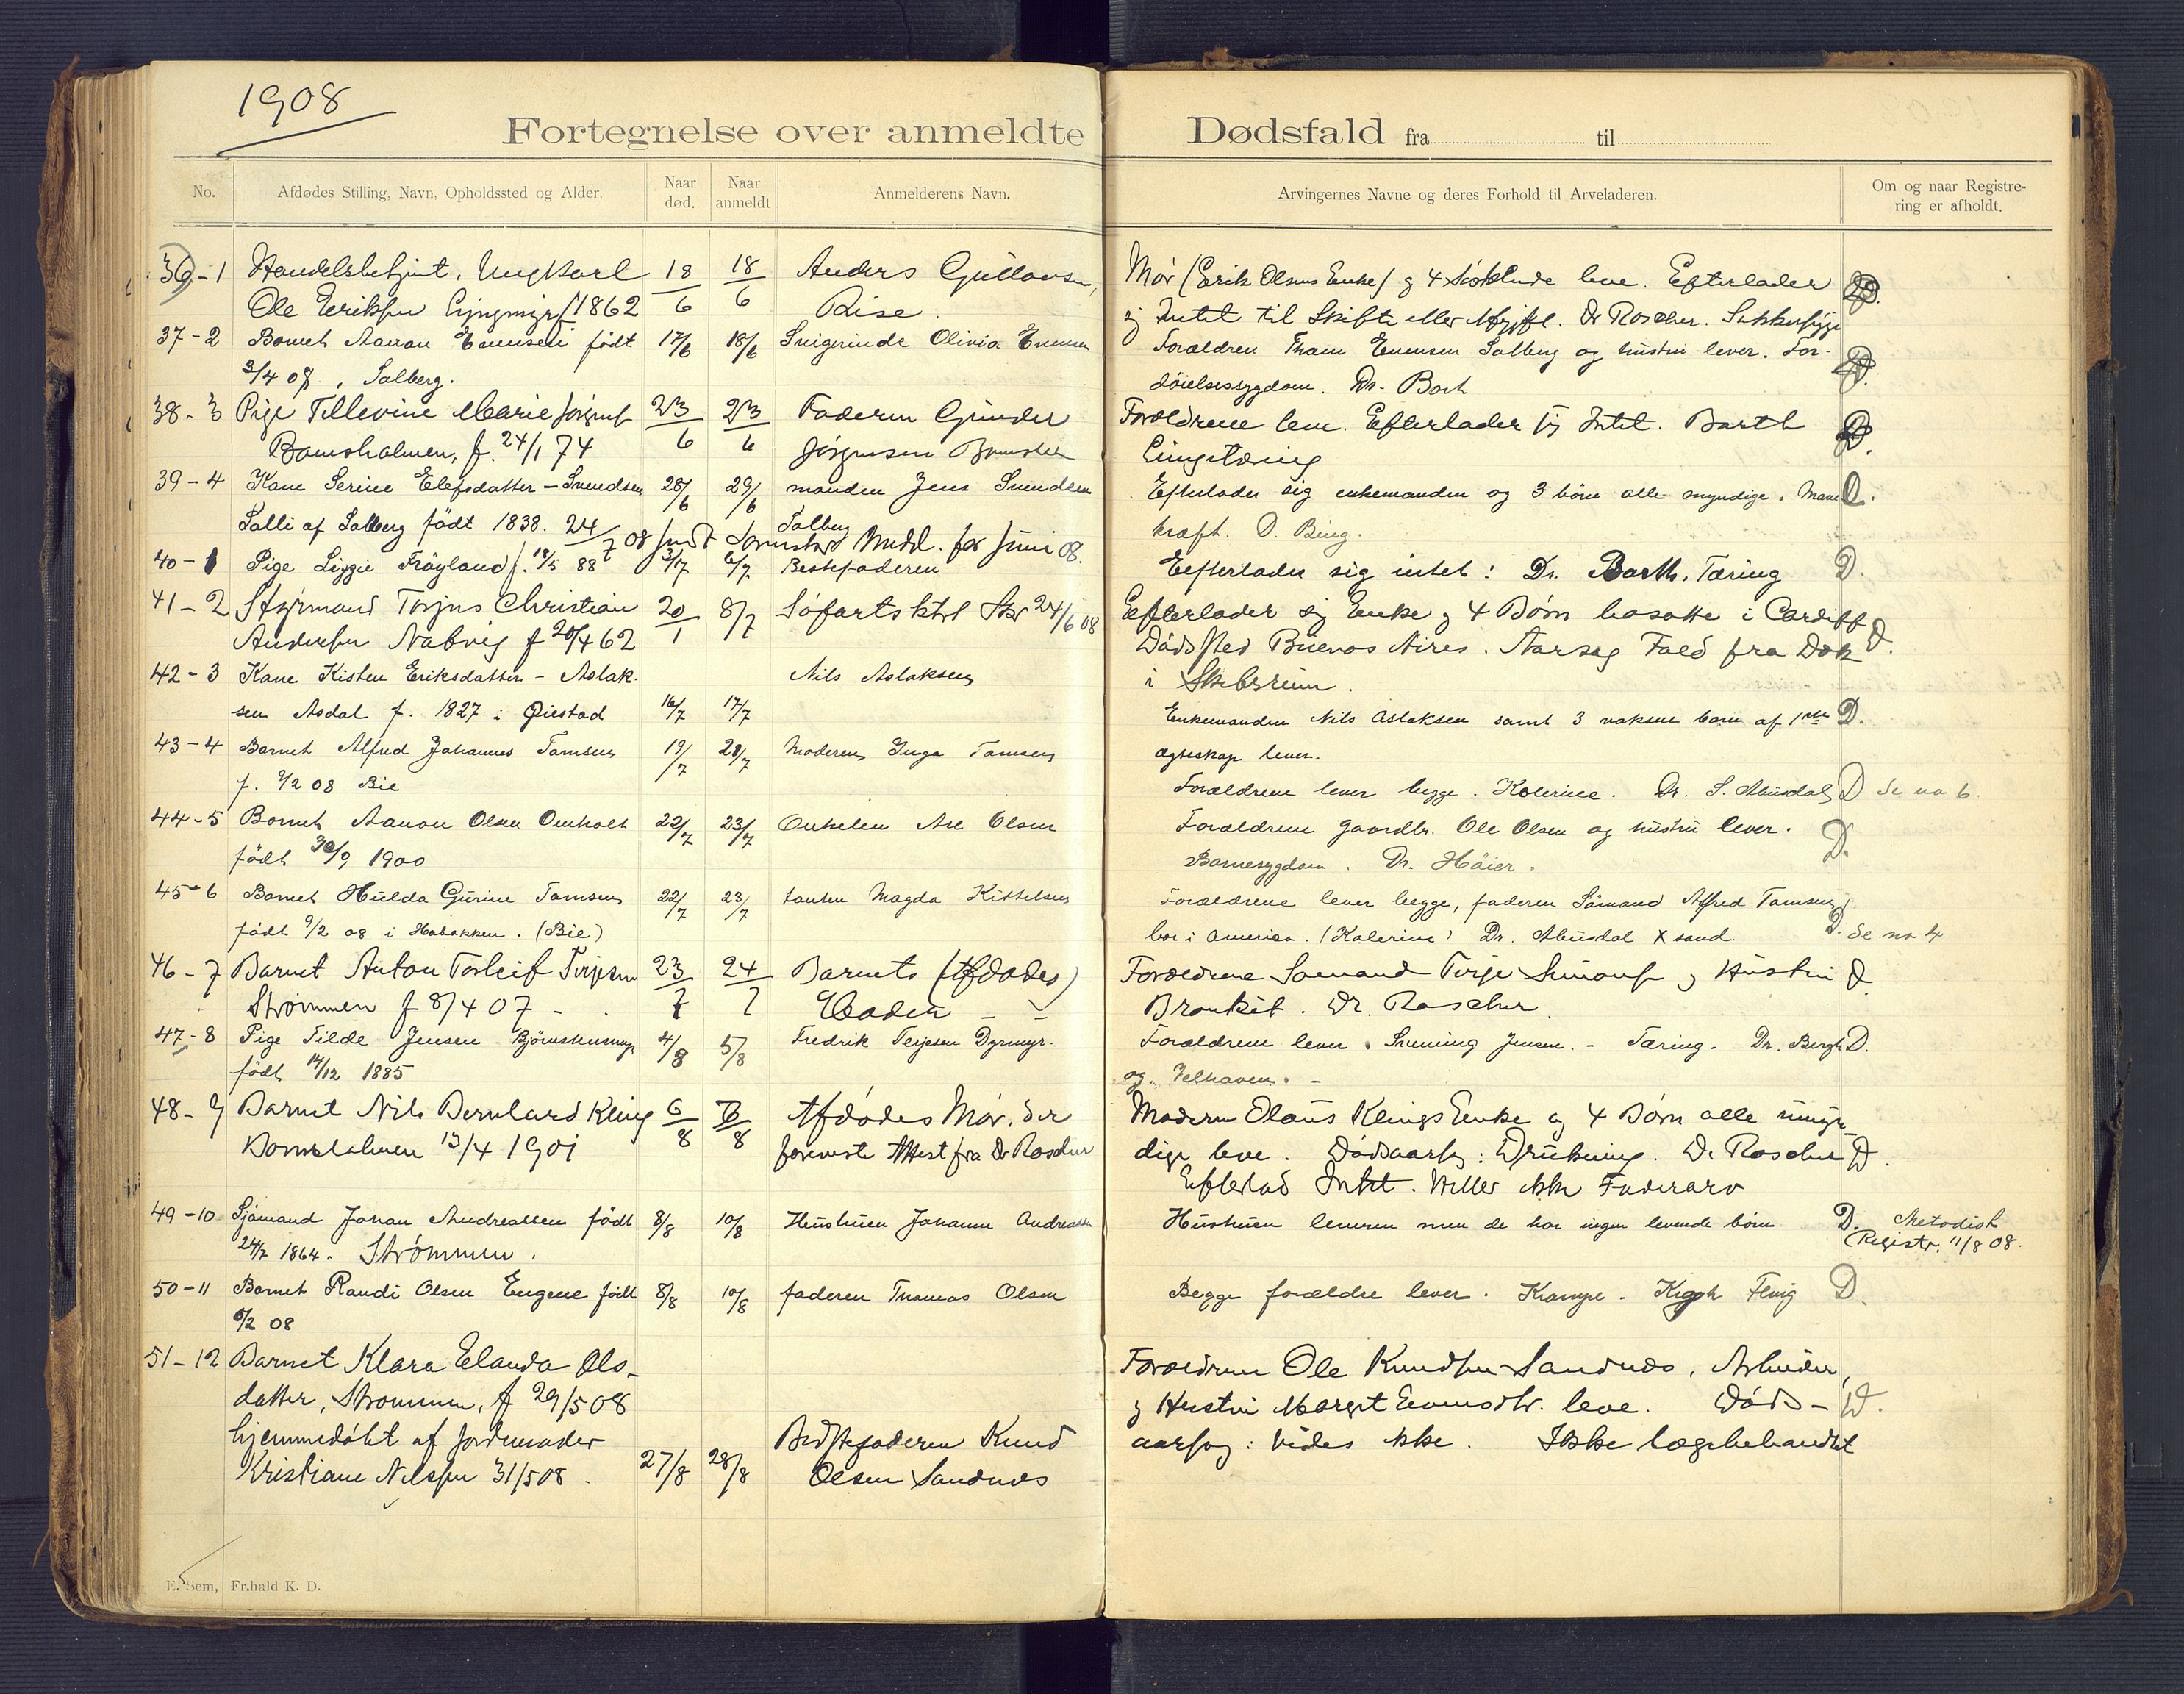 1908
Fortegnelse over anmeldte Dødsfald fra til
No. Afdødes Stilling, Navn, Opholdssted og Alder. Naar død. Naar anmeldt Anmelderens Navn. Arvingernes Navne og deres Forhold til Arveladeren. Om og naar Registrering er afholdt.
36-1 Handelsbetjent, Ungkarl 18/6 18/6 Anders Mor (Erik Olsens Enke) og 4 Søskende leve. Efterlader D.
Ole Eriksen f 1862 Rise. sig Intet til Skifte eller Dr Roscher.
37-2 Barnet Aanon Evensen født 17/6 18/6 Svigerinde Olivia Evensen Forældren Evensen Salberg og hustru lever. For- D.
3/4 08, Salberg. døielsessygdom. Dr.
38-3 Pige Tellevine Marie Jørgens 23/6 23/6 Faderen Gunder Forældrene leve. Efterlader sig Intet. Barth D.
f. 24/1 74 Jørgensen Lungetæring
39-4 Kone Serine Elefsdatter - Svendsen 28/6 29/6 manden Jens Svendsen Efterlader sig enkemanden og 3 børn alle myndige. D.
Salli af Salberg født 1838. Salberg kraft. D. Bing.
24/7 08 sendt Medd. for Juni 08.
40-1 Pige Lizzie Frøyland f. 18/5 88 3/7 6/7 Bestefaderen Efterlader sig intet: Dr. Barth. Tæring D.
41-2 Styrmand Torjus Christian 20/1 8/7 Søfartsktrl Skr 24/6 08 Efterlader sig Enke og 4 Børn bosatte i Cardiff D.
Andersen Nabvig f 20/4 62 Dødssted Buenos Aires. Aarsag Fald fra Dæk
42-3 Kone Kisten Eriksdatter - Aslak- Nils Aslaksen i Skibsrum.
sen Asdal f. 1827 i Øiestad 16/7 17/7 Enkemanden Nils Aslaksen samt 3 voksne barn af 1ste D.
43-4 Barnet Alfred Johannes Tomsen 19/7 20/7 Moderen Inga Tomsen ægteskap lever.
f. 9/2 08 Bie Forældrene lever begge. Kolerine. Dr. S. Abusdal D Se no 6.
44-5 Barnet Aanon Olsen Omholt 22/7 23/7 Onkelen Olsen Forældrene gaardbr. Ole Olsen og hustru lever. D.
født 30/9 1900 Barnesygdom. Dr. Høier.
45-6 Barnet Hulda Gurine Tomsen 22/7 23/7 tanten Magda Kittelsen Forældrene lever begge, faderen Sømand Alfred Tomsen
født 9/2 08 i Habakken. (Bie) bor i America. (Kolerine) Dr. Abusdal x sand D. Se no 4
46-7 Barnet Anton Torleif Terjesen 23/7 24/7 Barnets (Afdødes) Forældrene Sømand Terje Simons og Hustru D
Strømmen f 8/4 07 Moder Bronkit. Dr. Roscher.
47-8 Pige Tilde Jensen 4/8 5/8 Fredrik Terjesen Dyrmyr. Forældrene lever. Jensen. - Tæring. Dr. Bergh D.
født 14/12 1885 og Velhaven. -
48-9 Barnet Nils Bernhard Kling 6/8 7/8 Afdødes Mor, der Moderen Olaus Klings Enke og 4 Børn alle umyn-
13/4 1901 foreviste Attest fra Dr Roscher dige leve. Dødsaarsag: Drukning. Dr Roscher D.
Efterlod Intet. Heller ikke Fadersarv
49-10 Sjømand Johan Andreassen født 8/8 10/8 Hustruen Johanne Andreassen Hustruen lever men de har ingen levende børn D. Metodist
24/7 1864. Strømmen. Registr. 11/8 08.
50-11 Barnet Randi Olsen Engene født 8/8 10/8 faderen Thomas Olsen Begge forældre lever. Krampe. D
6/2 08
51-12 Barnet Klara Elanda Ols- Forældrene Ole Knudsen Sandnes, Arbeider,
datter, Strømmen, f 29/5 08 og Hustru Margit Evensdtr. leve. Døds- D.
hjemmedøbt af Jordmoder Bedstefaderen Knud aarsag: Vides ikke. Ikke lægebehandlet
Kristiane Nilssen 31/5 08. 27/8 28/8 Olsen Sandnes
E. Sem, Fr.hald K. D.